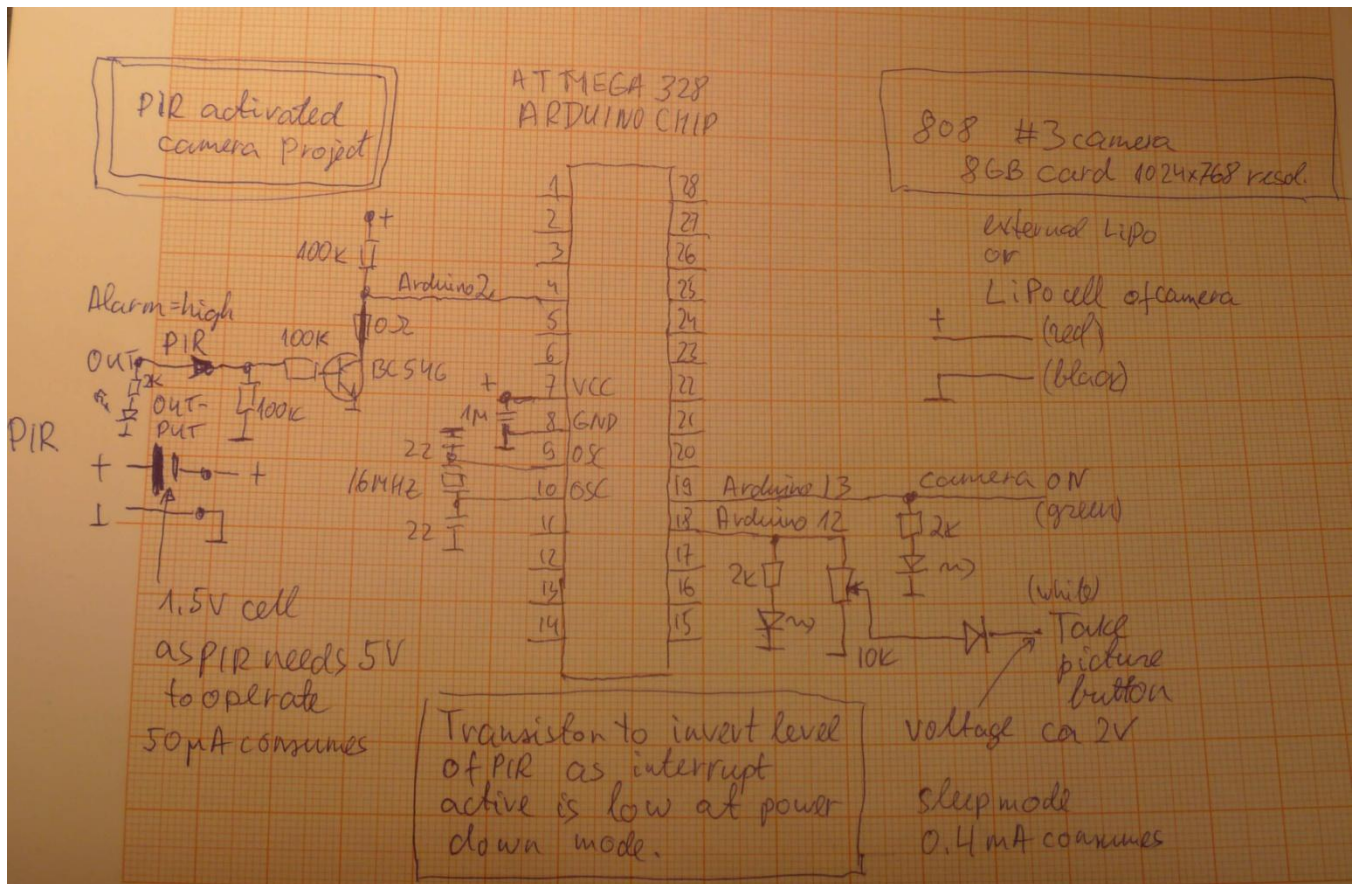 PIR activated
camera Project
ATMEGA 328
ARDUINO CHIP
808 #3 camera
8GB card 1024x768 resol.
external LiPo
or
LiPo cell of camera
+ (red)
(black)
+
100K
Arduino 2
0Ω
Alarm=high
OUT PIR
100K
BC546
2K
OUT-
PUT
100K
PIR
+ +
1.5V cell
as PIR needs 5V
to operate
50µA consumes
1 28
2 27
3 26
4 25
5 24
6 23
7 VCC 22
8 GND 21
9 OSC 20
10 OSC 19
11 18
12 17
13 16
14 15
+
1M
22
16MHZ
22
Arduino 13
camera ON
(green)
Arduino 12
2K
2K
10K
(white)
Take
picture
button
voltage ca 2V
sleep mode
0.4 mA consumes
Transistor to invert level
of PIR as interrupt
active is low at power
down mode.